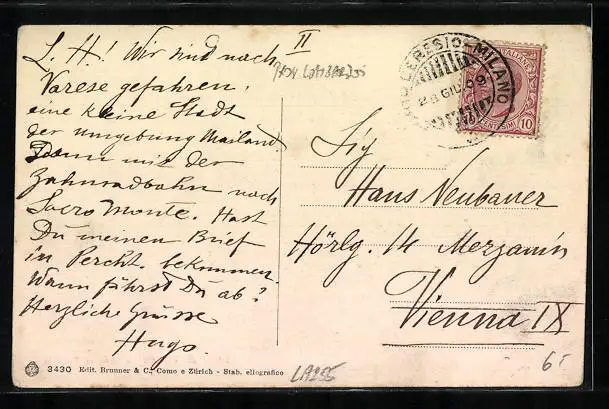 II
L. H.! Wir sind nach
Varese gefahren,
eine kleine Stadt
der Umgebung Mailand.
Dann mit der
Zahnradbahn nach
Sacro Monte. Hast
Du meinen Brief
in Percht. bekommen.
Wann fährst Du ab?
Herzliche Grüsse
Hugo.
CERESIO-MILANO
28 GIU. 09
10
Sig
Hans Neubauer
Hörlg. 14 Mezzanin
Vienna IX
6.-
3430 Edit. Brunner & C., Como e Zürich - Stab. eliografico
LA255